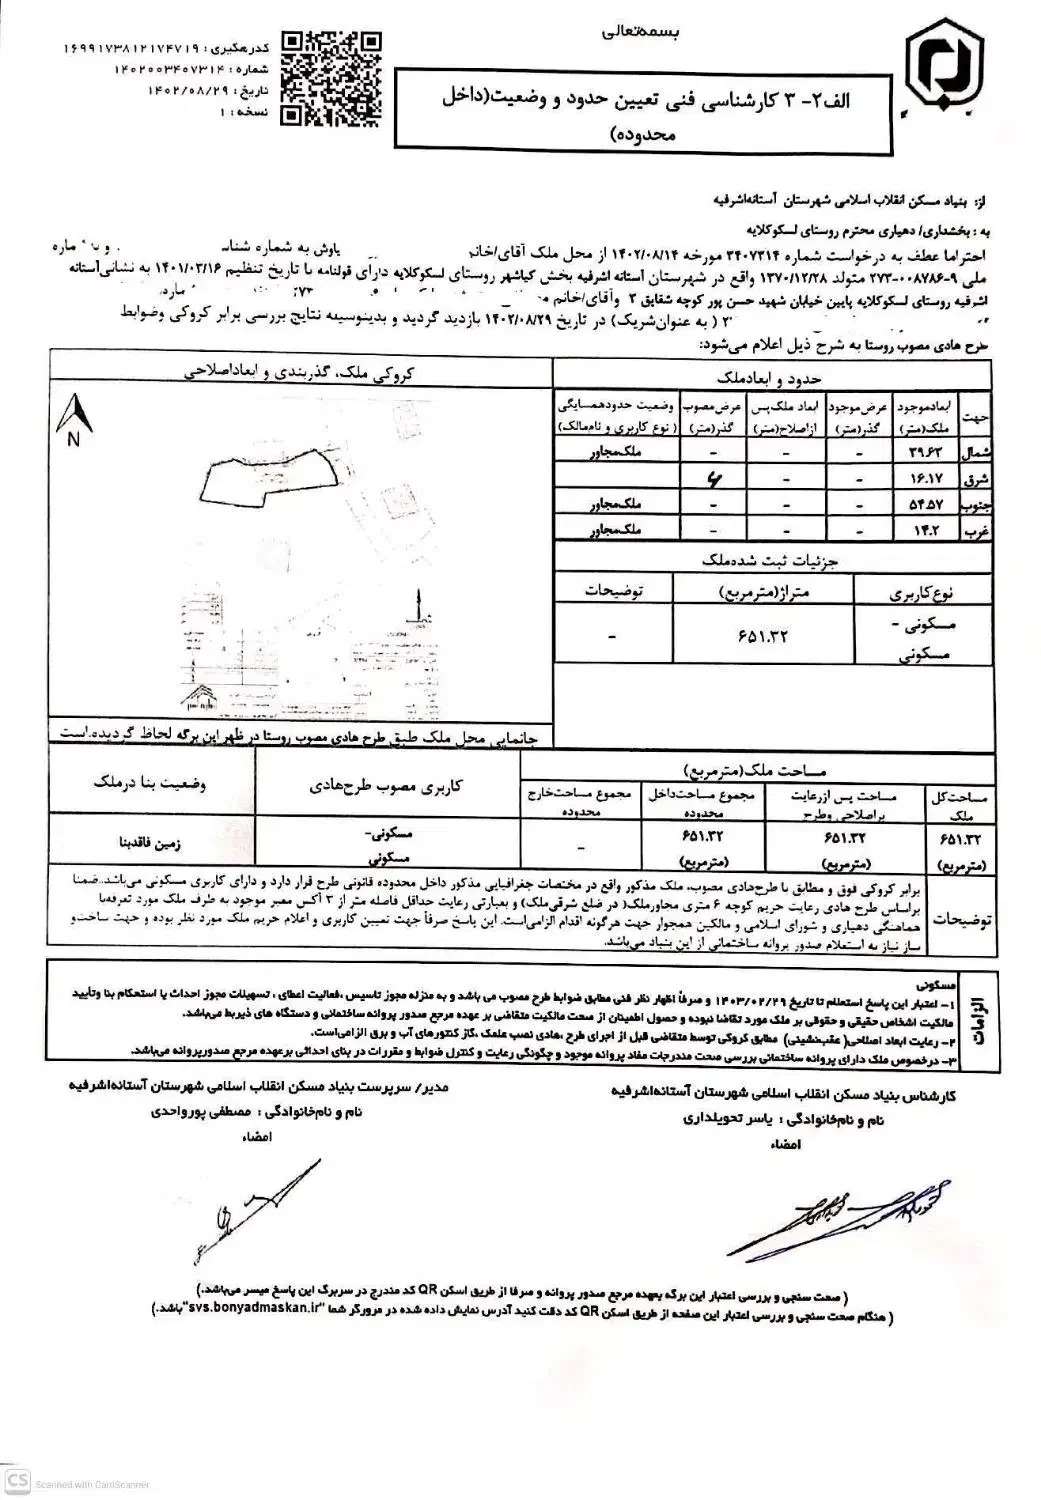 بسمه‌تعالی
الف۲- ۳ کارشناسی فنی تعیین حدود و وضعیت(داخل
محدوده)
کدرهگیری : ۱۶۹۹۱۷۳۸۱۲۱۷۴۷۱۹
شماره : ۱۴۰۲۰۰۳۴۰۷۳۱۴
تاریخ : ۱۴۰۲/۰۸/۲۹
نسخه : ۱
از: بنیاد مسکن انقلاب اسلامی شهرستان آستانه‌اشرفیه
به : بخشداری/ دهیاری محترم روستای لسکوکلایه
احتراما عطف به درخواست شماره ۳۴۰۷۳۱۴ مورخه ۱۴۰۲/۰۸/۱۴ از محل ملک آقای/خانم یاوش به شماره
ملی ۹-۰۰۸۷۸۶-۲۷۳ متولد ۱۳۷۰/۱۲/۲۸ واقع در شهرستان آستانه اشرفیه بخش کیاشهر روستای لسکوکلایه دارای قولنامه با تاریخ تنظیم ۱۴۰۱/۰۳/۱۶ به نشانی‌آستانه
اشرفیه روستای لسکوکلایه پایین خیابان شهید حسن پور کوچه شقایق ۳ وآقای/خانم
( به عنوان‌شریک) در تاریخ ۱۴۰۲/۰۸/۲۹ بازدید گردید و بدینوسیله نتایج بررسی برابر کروکی وضوابط
طرح هادی مصوب روستا به شرح ذیل اعلام می‌شود:
حدود و ابعادملک
کروکی ملک، گذربندی و ابعاداصلاحی
جهت ابعادموجود ملک(متر) عرض‌موجود گذر(متر) ابعاد ملک‌پس ازاصلاح(متر) عرض‌مصوب گذر(متر) وضعیت حدودهمسایگی ( نوع کاربری و نام‌مالک)
شمال ۳۹.۶۲ - - - ملک‌مجاور
شرق ۱۶.۱۷ - - ۶
جنوب ۵۴.۵۷ - - - ملک‌مجاور
غرب ۱۴.۲ - - - ملک‌مجاور
N
جزئیات ثبت شده‌ملک
نوع‌کاربری متراژ(مترمربع) توضیحات
مسکونی - مسکونی ۶۵۱.۳۲ -
جانمایی محل ملک طبق طرح هادی مصوب روستا در ظهر این برگه لحاظ گردیده.است
مساحت ملک(مترمربع) کاربری مصوب طرح‌هادی وضعیت بنا درملک
مساحت‌کل ملک مساحت پس ازرعایت براصلاحی وطرح مجموع مساحت‌داخل محدوده مجموع مساحت‌خارج محدوده
۶۵۱.۳۲ (مترمربع) ۶۵۱.۳۲ (مترمربع) ۶۵۱.۳۲ (مترمربع) - مسکونی- مسکونی زمین فاقدبنا
توضیحات
برابر کروکی فوق و مطابق با طرح‌هادی مصوب، ملک مذکور واقع در مختصات جغرافیایی مذکور داخل محدوده قانونی طرح قرار دارد و دارای کاربری مسکونی می‌باشد..ضمنا
براساس طرح هادی رعایت حریم کوچه ۶ متری مجاورملک( در ضلع شرقی‌ملک) و بعبارتی رعایت حداقل فاصله متر از ۳ آکس معبر موجود به طرف ملک مورد تعرفه‌با
هماهنگی دهیاری و شورای اسلامی و مالکین همجوار جهت هرگونه اقدام الزامی‌است. این پاسخ صرفاً جهت تعیین کاربری و اعلام حریم ملک مورد نظر بوده و جهت ساخت‌و
ساز نیاز به استعلام صدور پروانه ساختمانی از این بنیاد می‌باشد.
الزامات
مسکونی
۱- اعتبار این پاسخ استعلام تا تاریخ ۱۴۰۳/۰۲/۲۹ و صرفاً اظهار نظر فنی مطابق ضوابط طرح مصوب می باشد و به منزله مجوز تاسیس ،فعالیت اعطای ، تسهیلات مجوز احداث یا استحکام بنا وتأیید
مالکیت اشخاص حقیقی و حقوقی بر ملک مورد تقاضا نبوده و حصول اطمینان از صحت مالکیت متقاضی بر عهده مرجع صدور پروانه ساختمانی و دستگاه های ذیربط می‌باشد.
۲- رعایت ابعاد اصلاحی( عقب‌نشینی) مطابق کروکی توسط متقاضی قبل از اجرای طرح ،هادی نصب علمک ،گاز کنتورهای آب و برق الزامی‌است.
۳- درخصوص ملک دارای پروانه ساختمانی بررسی صحت مندرجات مفاد پروانه موجود و چگونگی رعایت و کنترل ضوابط و مقررات در بنای احداثی برعهده مرجع صدورپروانه می‌باشد.
کارشناس بنیاد مسکن انقلاب اسلامی شهرستان آستانه‌اشرفیه
نام و نام‌خانوادگی : یاسر تحویلداری
امضاء
مدیر/ سرپرست بنیاد مسکن انقلاب اسلامی شهرستان آستانه‌اشرفیه
نام و نام‌خانوادگی : مصطفی پورواحدی
امضاء
( صحت سنجی و بررسی اعتبار این برگه بعهده مرجع صدور پروانه و صرفا از طریق اسکن QR کد مندرج در سربرگ این پاسخ میسر می‌باشد.)
( هنگام صحت سنجی و بررسی اعتبار این صفحه از طریق اسکن QR کد دقت کنید آدرس نمایش داده شده در مرورگر شما "svs.bonyadmaskan.ir"باشد.)
CS Scanned with CamScanner